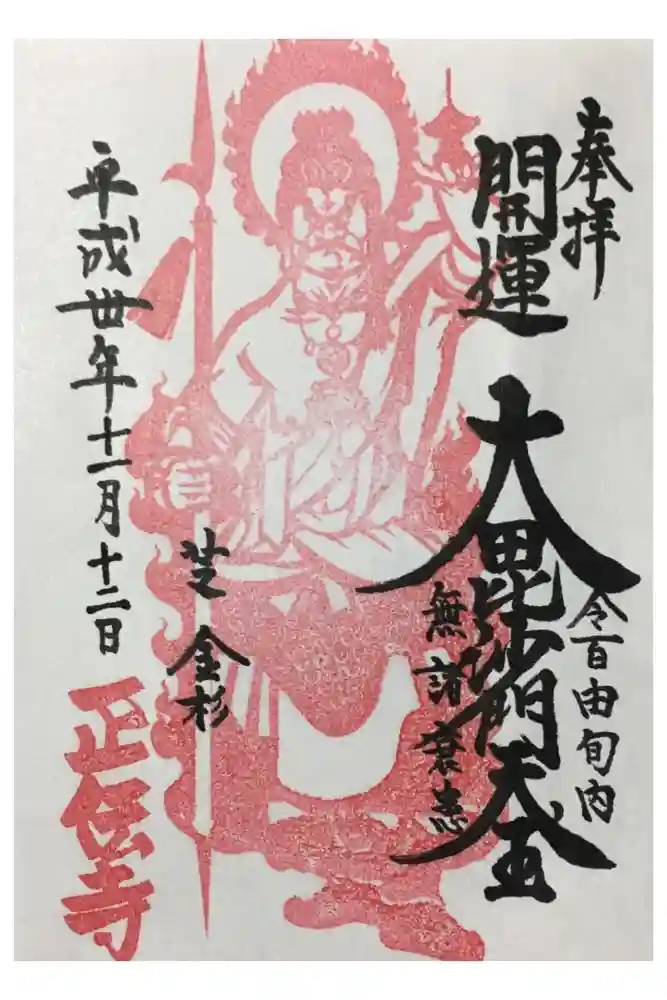 奉拝
開運
大毘沙門天王
令百由旬内
無諸衰患
芝 金杉
平成卅年十一月十二日
正伝寺